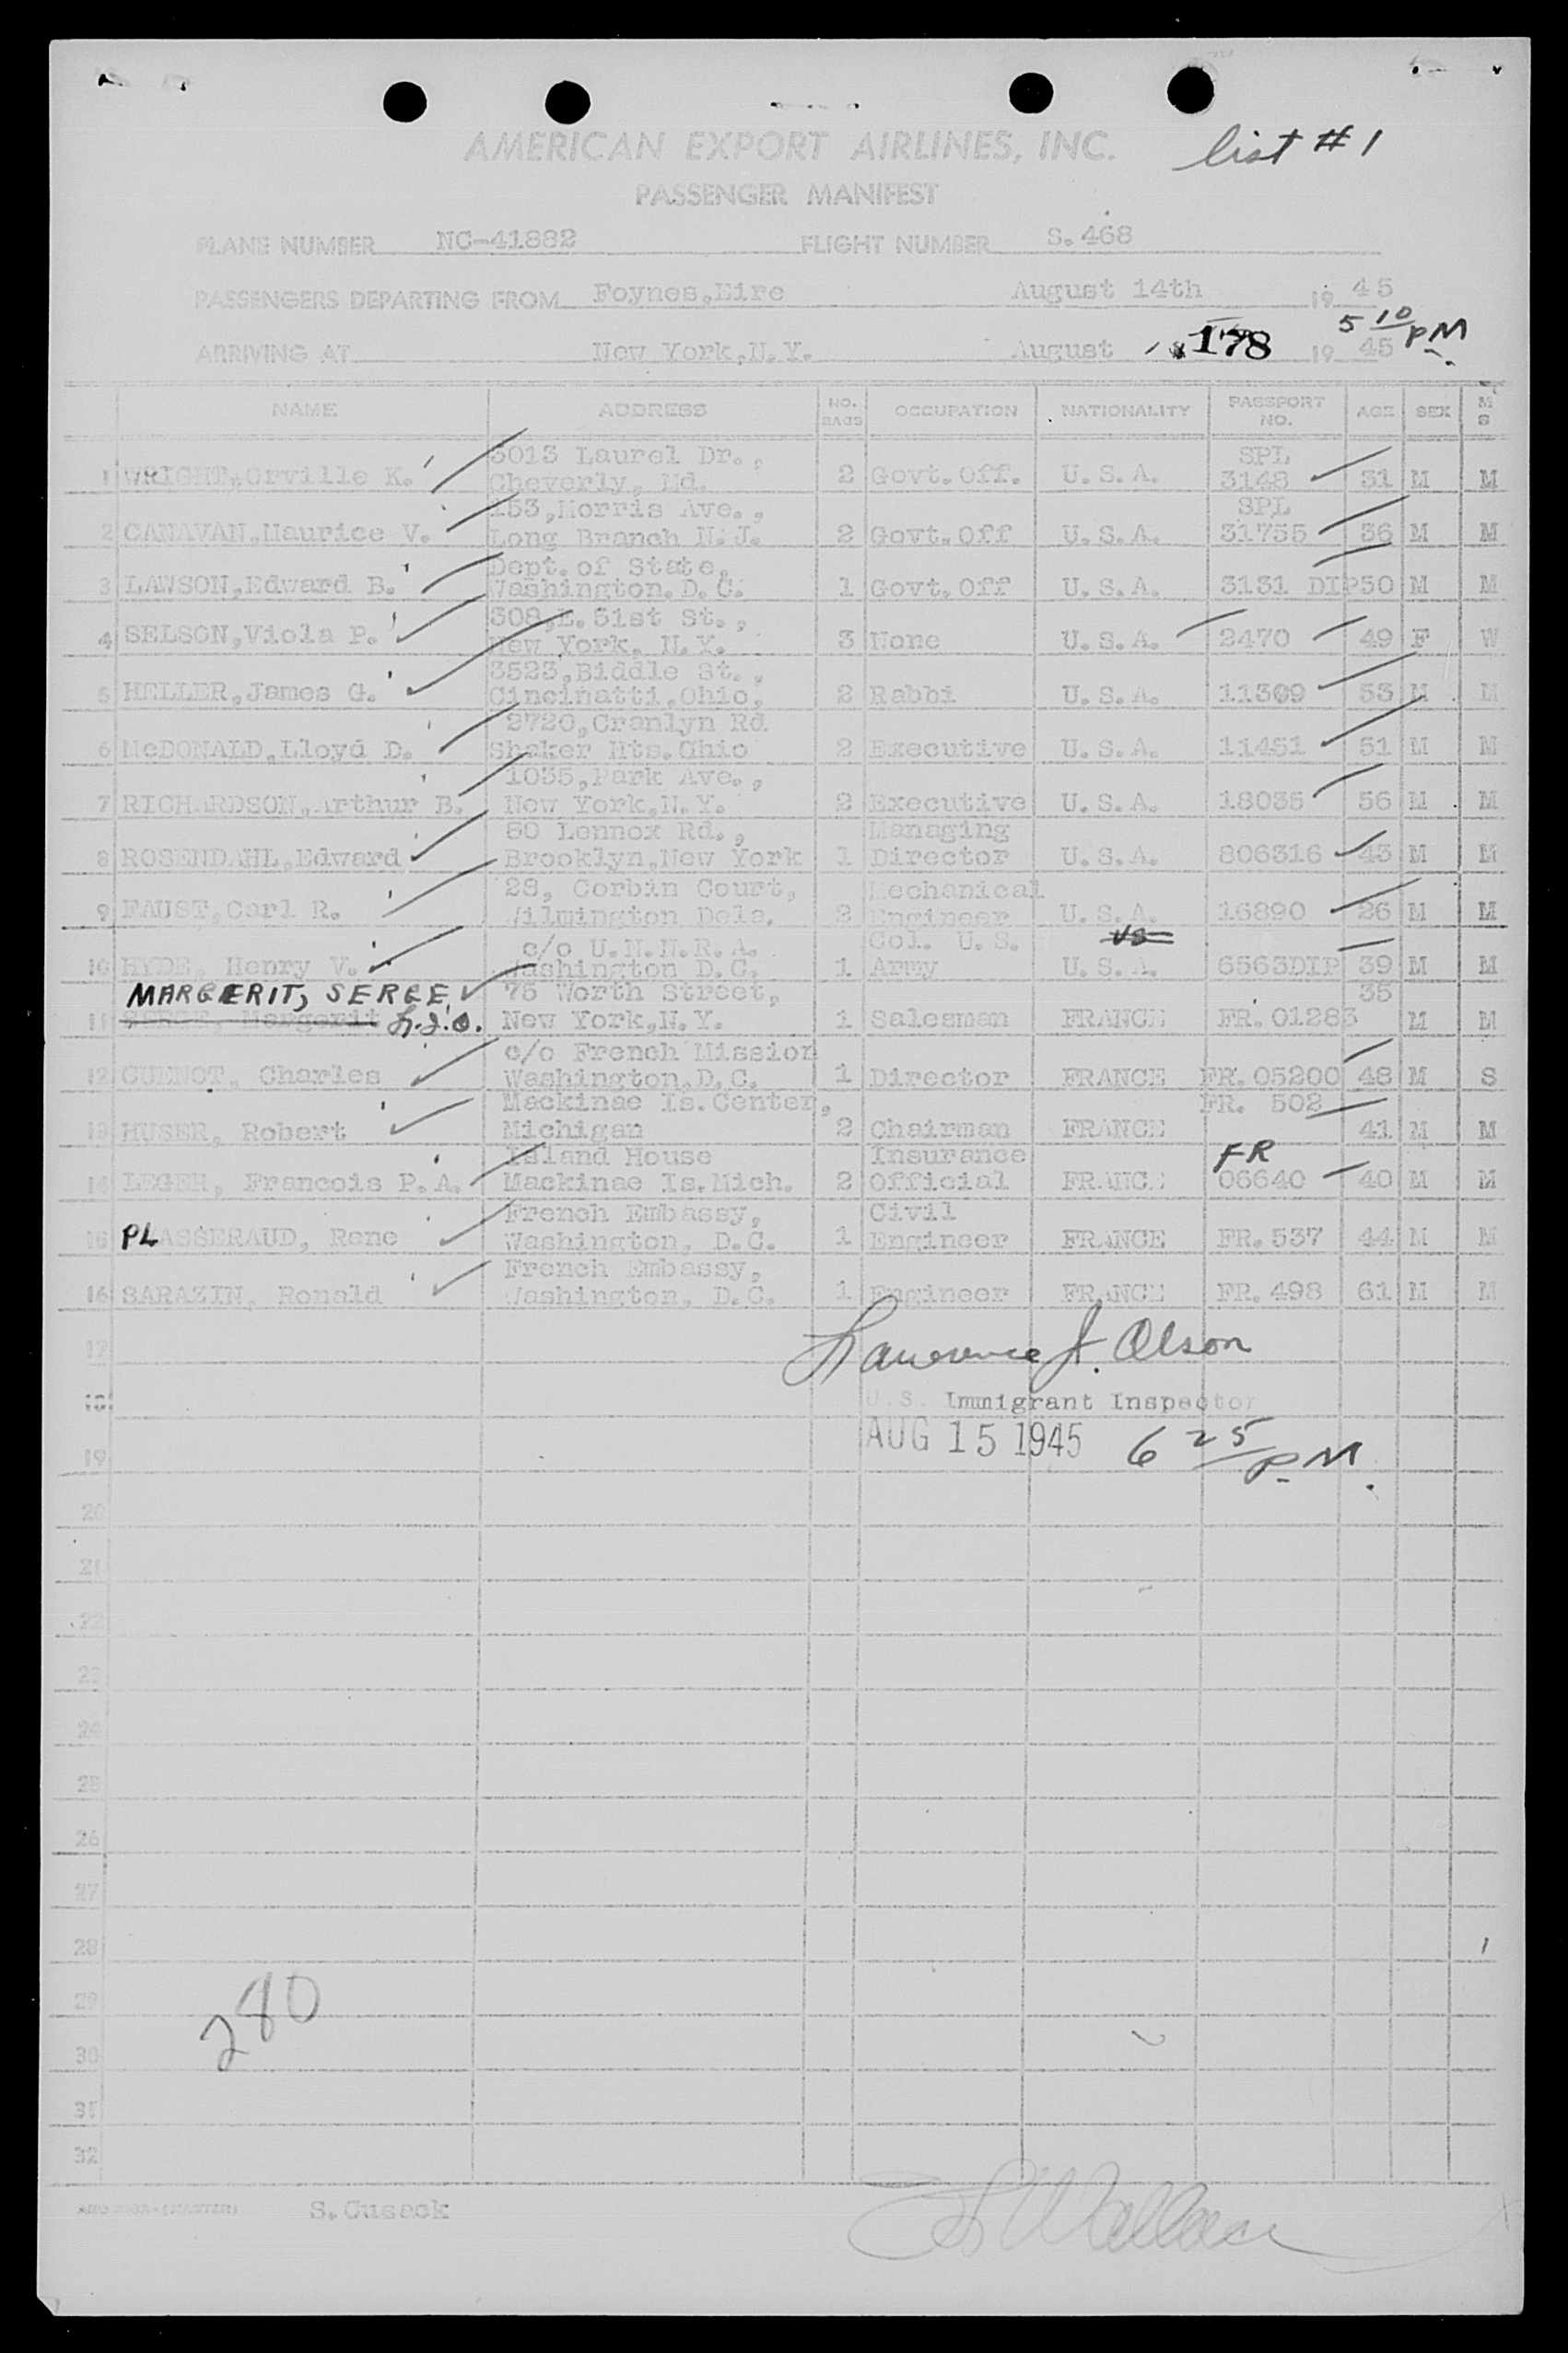 list # 1
AMERICAN EXPORT AIRLINES, INC.
PASSENGER MANIFEST
PLANE NUMBER NC-41882 FLIGHT NUMBER S.468
PASSENGERS DEPARTING FROM Foynes,Eire August 14th 19 45
5 10 PM
ARRIVING AT New York,N.Y. August 178 19 45
NAME ADDRESS NO. BAGS OCCUPATION NATIONALITY PASSPORT NO. AGE SEX M S
5013 Laurel Dr., SPL
1 WRIGHT,Orville K. Cheverly, Md. 2 Govt.Off. U.S.A. 3148 31 M M
153,Morris Ave., SPL
2 CANAVAN,Maurice V. Long Branch N.J. 2 Govt.Off U.S.A. 31755 36 M M
Dept.of State,
3 LAWSON,Edward B. Washington.D.C. 1 Govt.Off U.S.A. 3131 DIP 50 M M
308,E.51st St.,
4 SELSON,Viola P. New York, N.Y. 3 None U.S.A. 2470 49 F W
3523,Biddle St.,
5 HELLER,James G. Cincinatti,Ohio, 2 Rabbi U.S.A. 11309 53 M M
2720,Cranlyn Rd.
6 McDONALD,Lloyd D. Shaker Hts.Ohio 2 Executive U.S.A. 11451 51 M M
1035,Park Ave.,
7 RICHARDSON,Arthur B. New York,N.Y. 2 Executive U.S.A. 18035 56 M M
60 Lennox Rd., Managing
8 ROSENDAHL,Edward Brooklyn,New York 1 Director U.S.A. 806316 43 M M
28, Corbin Court, Mechanical
9 FAUST,Carl R. Wilmington Dela. 2 Engineer U.S.A. 16890 26 M M
c/o U.N.N.R.A. Col. U.S. US
10 HYDE, Henry V. Washington D.C. 1 Army U.S.A. 6563DIP 39 M M
MARGERIT, SERGE 75 Worth Street, 35
11 SERGE, Margerit L.J.O. New York,N.Y. 1 Salesman FRANCE FR.01283 M M
c/o French Mission
12 CUENOT, Charles Washington,D.C. 1 Director FRANCE FR.05200 48 M S
Mackinac Is.Center, FR. 502
13 HUSER, Robert Michigan 2 Chairman FRANCE 41 M M
Island House Insurance FR
14 LEGER, Francois P.A. Mackinac Is.Mich. 2 Official FRANCE 06640 40 M M
French Embassy, Civil
15 PLASSERAUD, Rene Washington, D.C. 1 Engineer FRANCE FR.537 44 M M
French Embassy,
16 SARAZIN, Ronald Washington, D.C. 1 Engineer FRANCE FR.498 61 M M
17
Lawrence J. Olson
18
U.S. Immigrant Inspector
19
AUG 15 1945 6 25 PM.
20
21
22
23
24
25
26
27
28
29
280
30
31
32
S.Cusack
Wallace